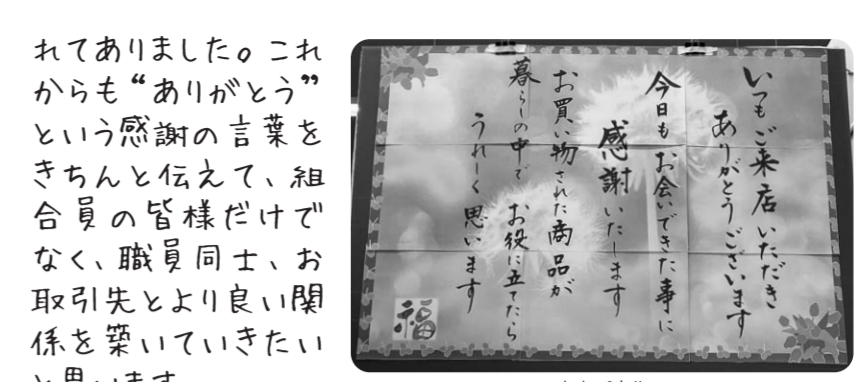 れてありました。これ
からも“ありがとう”
という感謝の言葉を
きちんと伝えて、組
合員の皆様だけで
なく、職員同士、お
取引先とより良い関
係を築いていきたい
と思います
いつもご来店いただき
ありがとうございます
今日もお会いできた事に
感謝いたします
お買い物された商品が
暮らしの中でお役に立てたら
うれしく思います
福